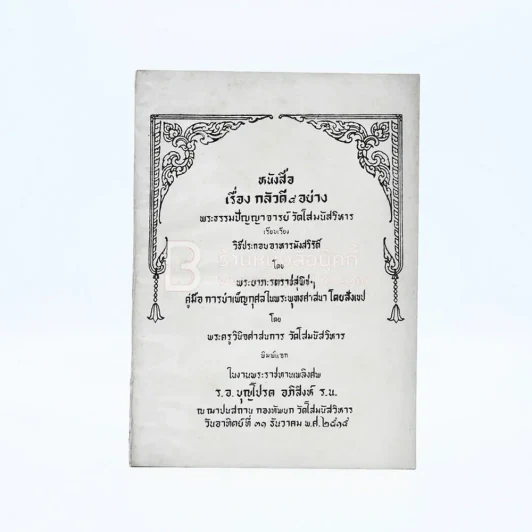 หนังสือ
เรื่อง กลัวดี๙อย่าง
พระธรรมปัญญาจารย์ วัดโสมนัสวิหาร
เรียบเรียง
วิธีประกอบอาหารมังสวิรัติ
โดย
คู่มือ การบำเพ็ญกุศลในพระพุทธศาสนา โดยสังเขป
โดย
พระครูวินิจศาสนการ วัดโสมนัสวิหาร
พิมพ์แจก
ในงานพระราชทานเพลิงศพ
ร.อ. บุญโปรด อภิสิงห์ ร.น.
ณ ฌาปนสถาน กองทัพบก วัดโสมนัสวิหาร
วันอาทิตย์ที่ ๓๑ ธันวาคม พ.ศ. ๒๕๑๕